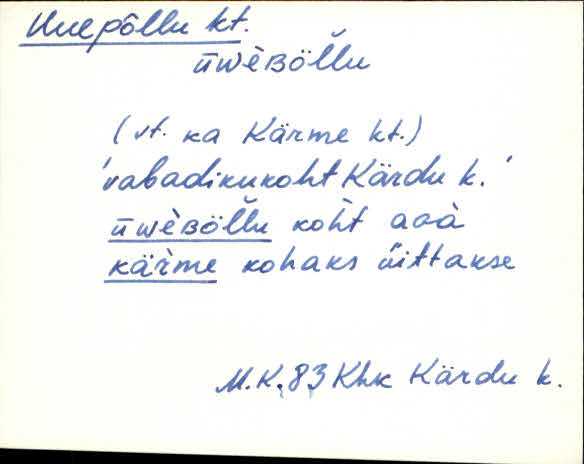 Uuepõllu kt.
ūwèʙöl̆lu
(vt. ka Kärme kt.)
'vabadikukoht Kärdu k.'
ūwèʙöl̆lu koh̀t aoà
kär̀me kohaks üittakse
M.K. 83 Khk Kärdu k.